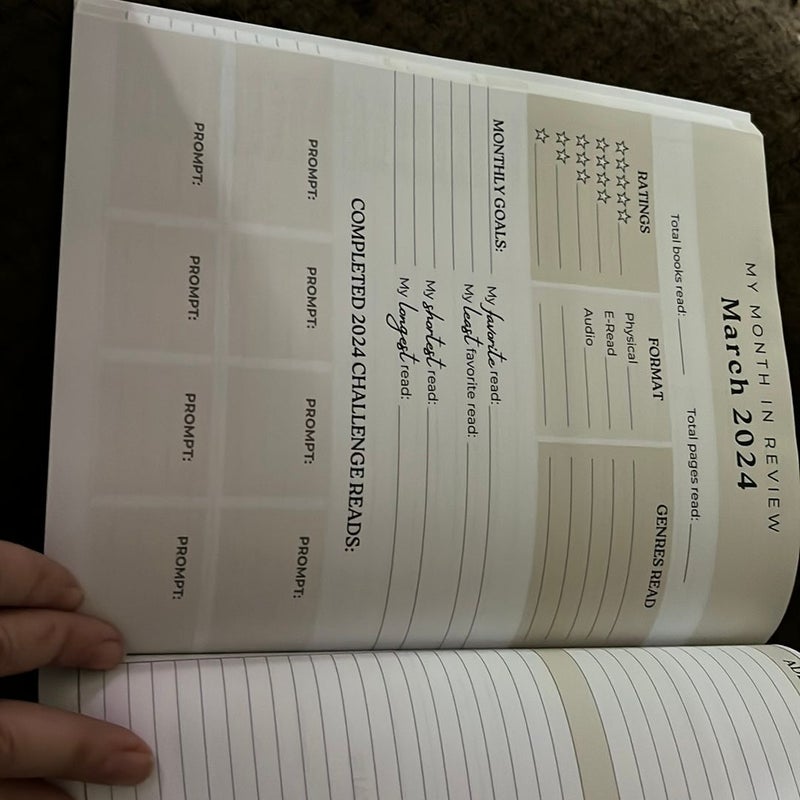 MY MONTH IN REVIEW
March 2024
Total books read: Total pages read:
RATINGS FORMAT GENRES READ
☆☆☆☆☆ Physical
☆☆☆☆ E-Read
☆☆☆ Audio
☆☆
☆
MONTHLY GOALS:
My favorite read:
My least favorite read:
My shortest read:
My longest read:
COMPLETED 2024 CHALLENGE READS:
PROMPT: PROMPT: PROMPT: PROMPT:
PROMPT: PROMPT: PROMPT: PROMPT: